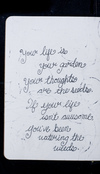 Your life is
your garden
Your thoughts
are the seeds
If your life
isn't awesome
You've been
watering the
weeds.